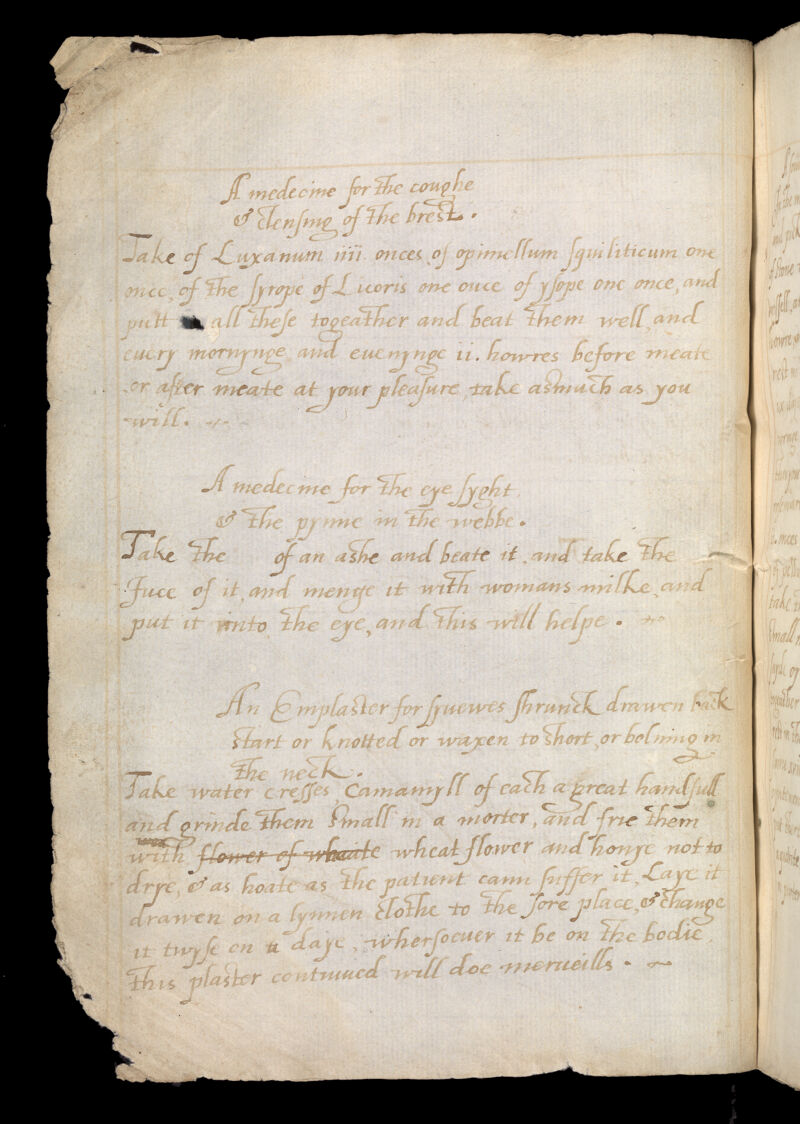 A medecine for the coughe
& clensing of the brest.
Take of Luxanum iiii onces of opimellum squiliticum one
once, of the syrope of Licoris one once of ysope one once, and
putt all these togeather and beat them well, and
euery mornynge and euenynge ii. howres before meate
or after meate at your pleasure, take asmuch as you
will.
A medecine for the eye syght
& the pynne in the webbe.
Take the of an ashe and beate it, and take the
Juce of it, and menge it with womans milke, and
put it into the eye, and this will helpe.
An Emplaster for synewes shrunck drawen back
start or knotted or waxen to short, or bolning in
the neck.
Take water cresses Camamyll of each a great handfull
and grinde them small in a morter, and frie them
with flower of wheate wheat flower and honye not to
drye, & as hoate as the patient cann suffer it, Laye it
drawen on a lynnen clothe to the sore place, & change
it twyse on a daye, whersoeuer it be on the bodie,
this plaster continued will doe merueills.